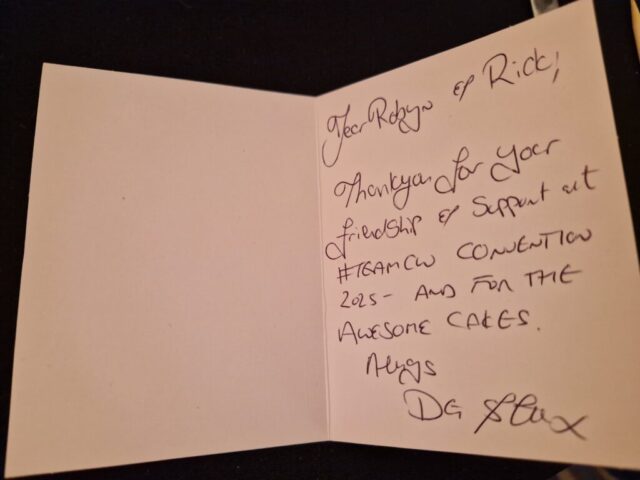 Dear Robyn & Rick,
Thankyou for your
friendship & Support at
#TEAMCW CONVENTION
2025- AND FOR THE
AWESOME CAKES.
Hugs
DG